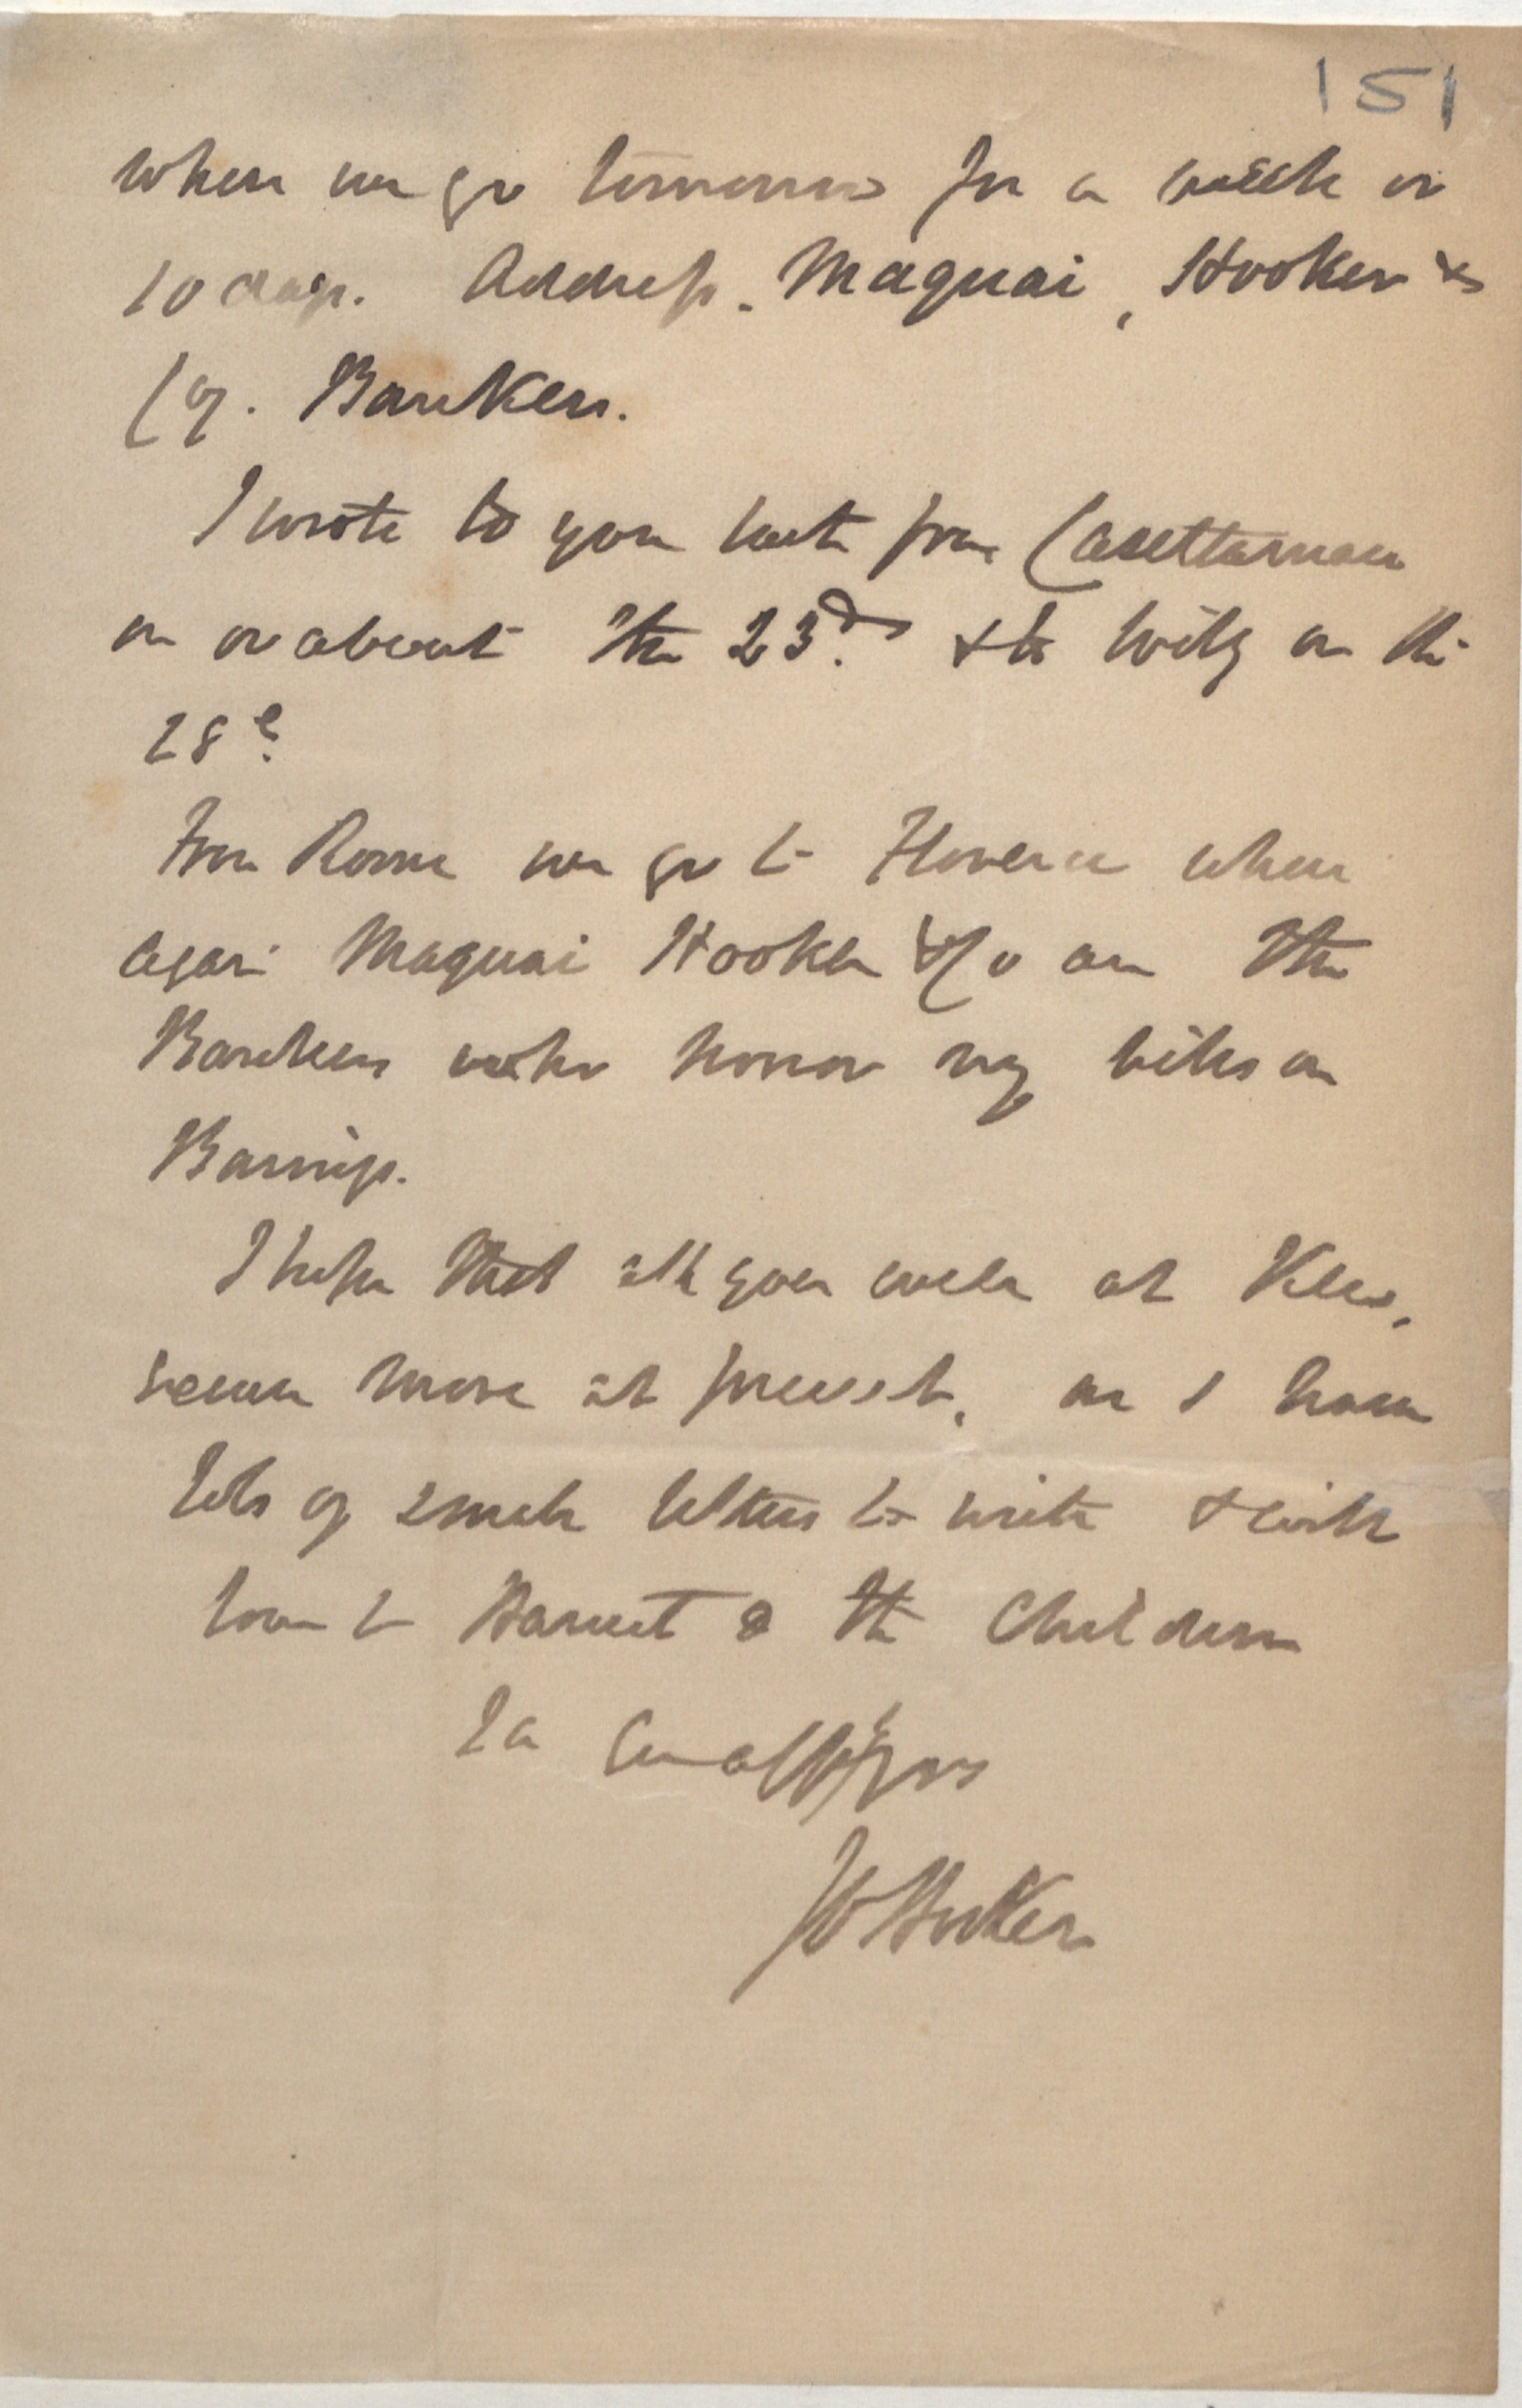 151
where we go tomorrow for a week or
10 days. Address. Maquai, Hooker &
Co. Bankers.
I wrote to you last from
on or about the 23.d & to Willy on the
28th
From Rome we go to Florence where
again Maquai Hooker & Co are the
Bankers who honor my bills on
Barings.
I hope that all goes well at Kew,
no more at present, as I have
lots of small letters to write & with
love to Harriet & the Children
Ever affly yrs
JDHooker